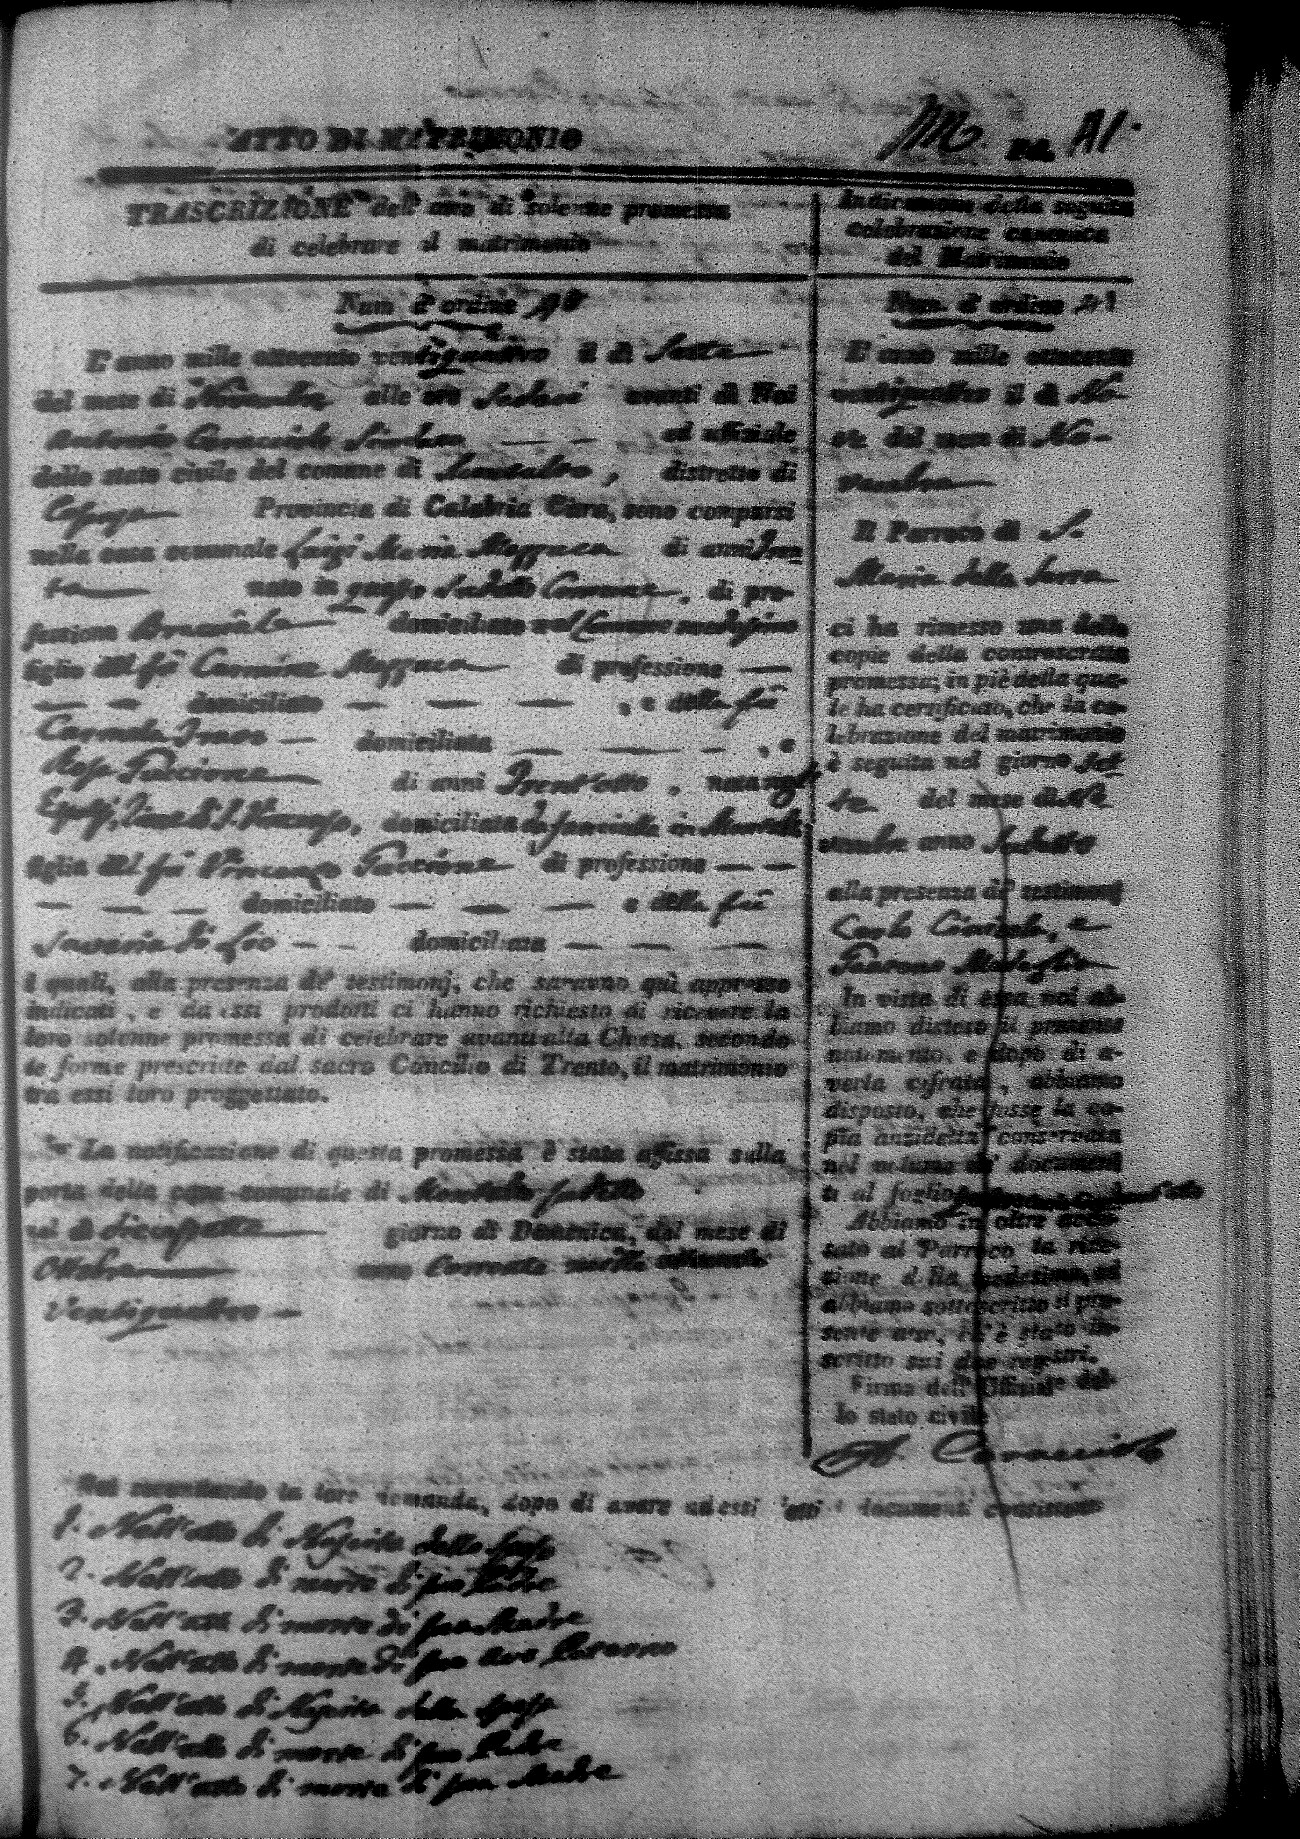 ATTO DI MATRIMONIO
pag. 41.
TRASCRIZIONE dell' atto di solenne promessa
di celebrare il matrimonio
Num d' ordine
L' anno mille ottocento ventiquattro il dì Sette
del mese di Novembre alle ore Sedeci avanti di Noi
Antonio Caracciolo Sindaco ed uffiziale
dello stato civile del comune di Montalto, distretto di
Cosenza Provincia di Calabria Citra, sono comparsi
nella casa comunale Luigi Maria Mazzuca di anni Tren
ta nato in questo sudetto Comune, di pro-
fessione Bracciale domiciliato nel Comune medesimo
figlio del fù Carmine Mazzuca di professione
domiciliato , e della fù
Carmela domiciliata , e
Rosa Faccione di anni Trent'otto, nata
domiciliata
figlia del fù Vincenzo Faccione di professione
domiciliato e della fù
Saveria di Lio domiciliata
i quali, alla presenza de' testimonj, che saranno quì appresso
indicati, e da essi prodotti ci hanno richiesto di ricevere la
loro solenne promessa di celebrare avanti alla Chiesa, secondo
le forme prescritte dal sacro Concilio di Trento, il matrimonio
tra essi loro proggettato.
La notificazione di questa promessa è stata affissa sulla
porta della casa comunale di Montalto sudetto
nel dì diecisette giorno di Domenica, del mese di
Ottobre anno Corrente mille ottocento
Ventiquattro
Indicazione della seguita
celebrazione canonica
del Matrimonio
Num. d' ordine 41
L' anno mille ottocento
ventiquattro il dì No-
ve del mese di No-
vembre
Il Parroco di S.
Maria della Serra
ci ha rimesso una delle
copie della controscritta
promessa; in piè della qua-
le ha certificato, che la ce-
lebrazione del matrimonio
è seguita nel giorno Set-
te del mese di No
vembre anno Sudetto
alla presenza de' testimonj
Carlo e
In vista di essa noi ab-
biamo disteso il presente
notamento, e dopo di a-
verla cifrata, abbiamo
disposto, che fosse la co-
pia anzidetta conservata
nel volume de' documen-
ti al foglio
Abbiamo in oltre accu-
sato al Parroco la rice-
zione della medesima, ed
abbiamo sottoscritto il pre-
sente atto, ch' è stato in-
scritto sui due registri.
Firma dell' Offiziale del-
lo stato civile
A. Caracciolo
Noi secondando la loro domanda, dopo di avere ad essi letti i documenti consistenti
1. Nell'atto di Nascita dello Sposo
2. Nell'atto di morte di suo Padre
3. Nell'atto di morte di sua Madre
4. Nell'atto di morte di suo Avo Paterno
5. Nell'atto di Nascita della Sposa
6. Nell'atto di morte di suo Padre
7. Nell'atto di morte di sua Madre